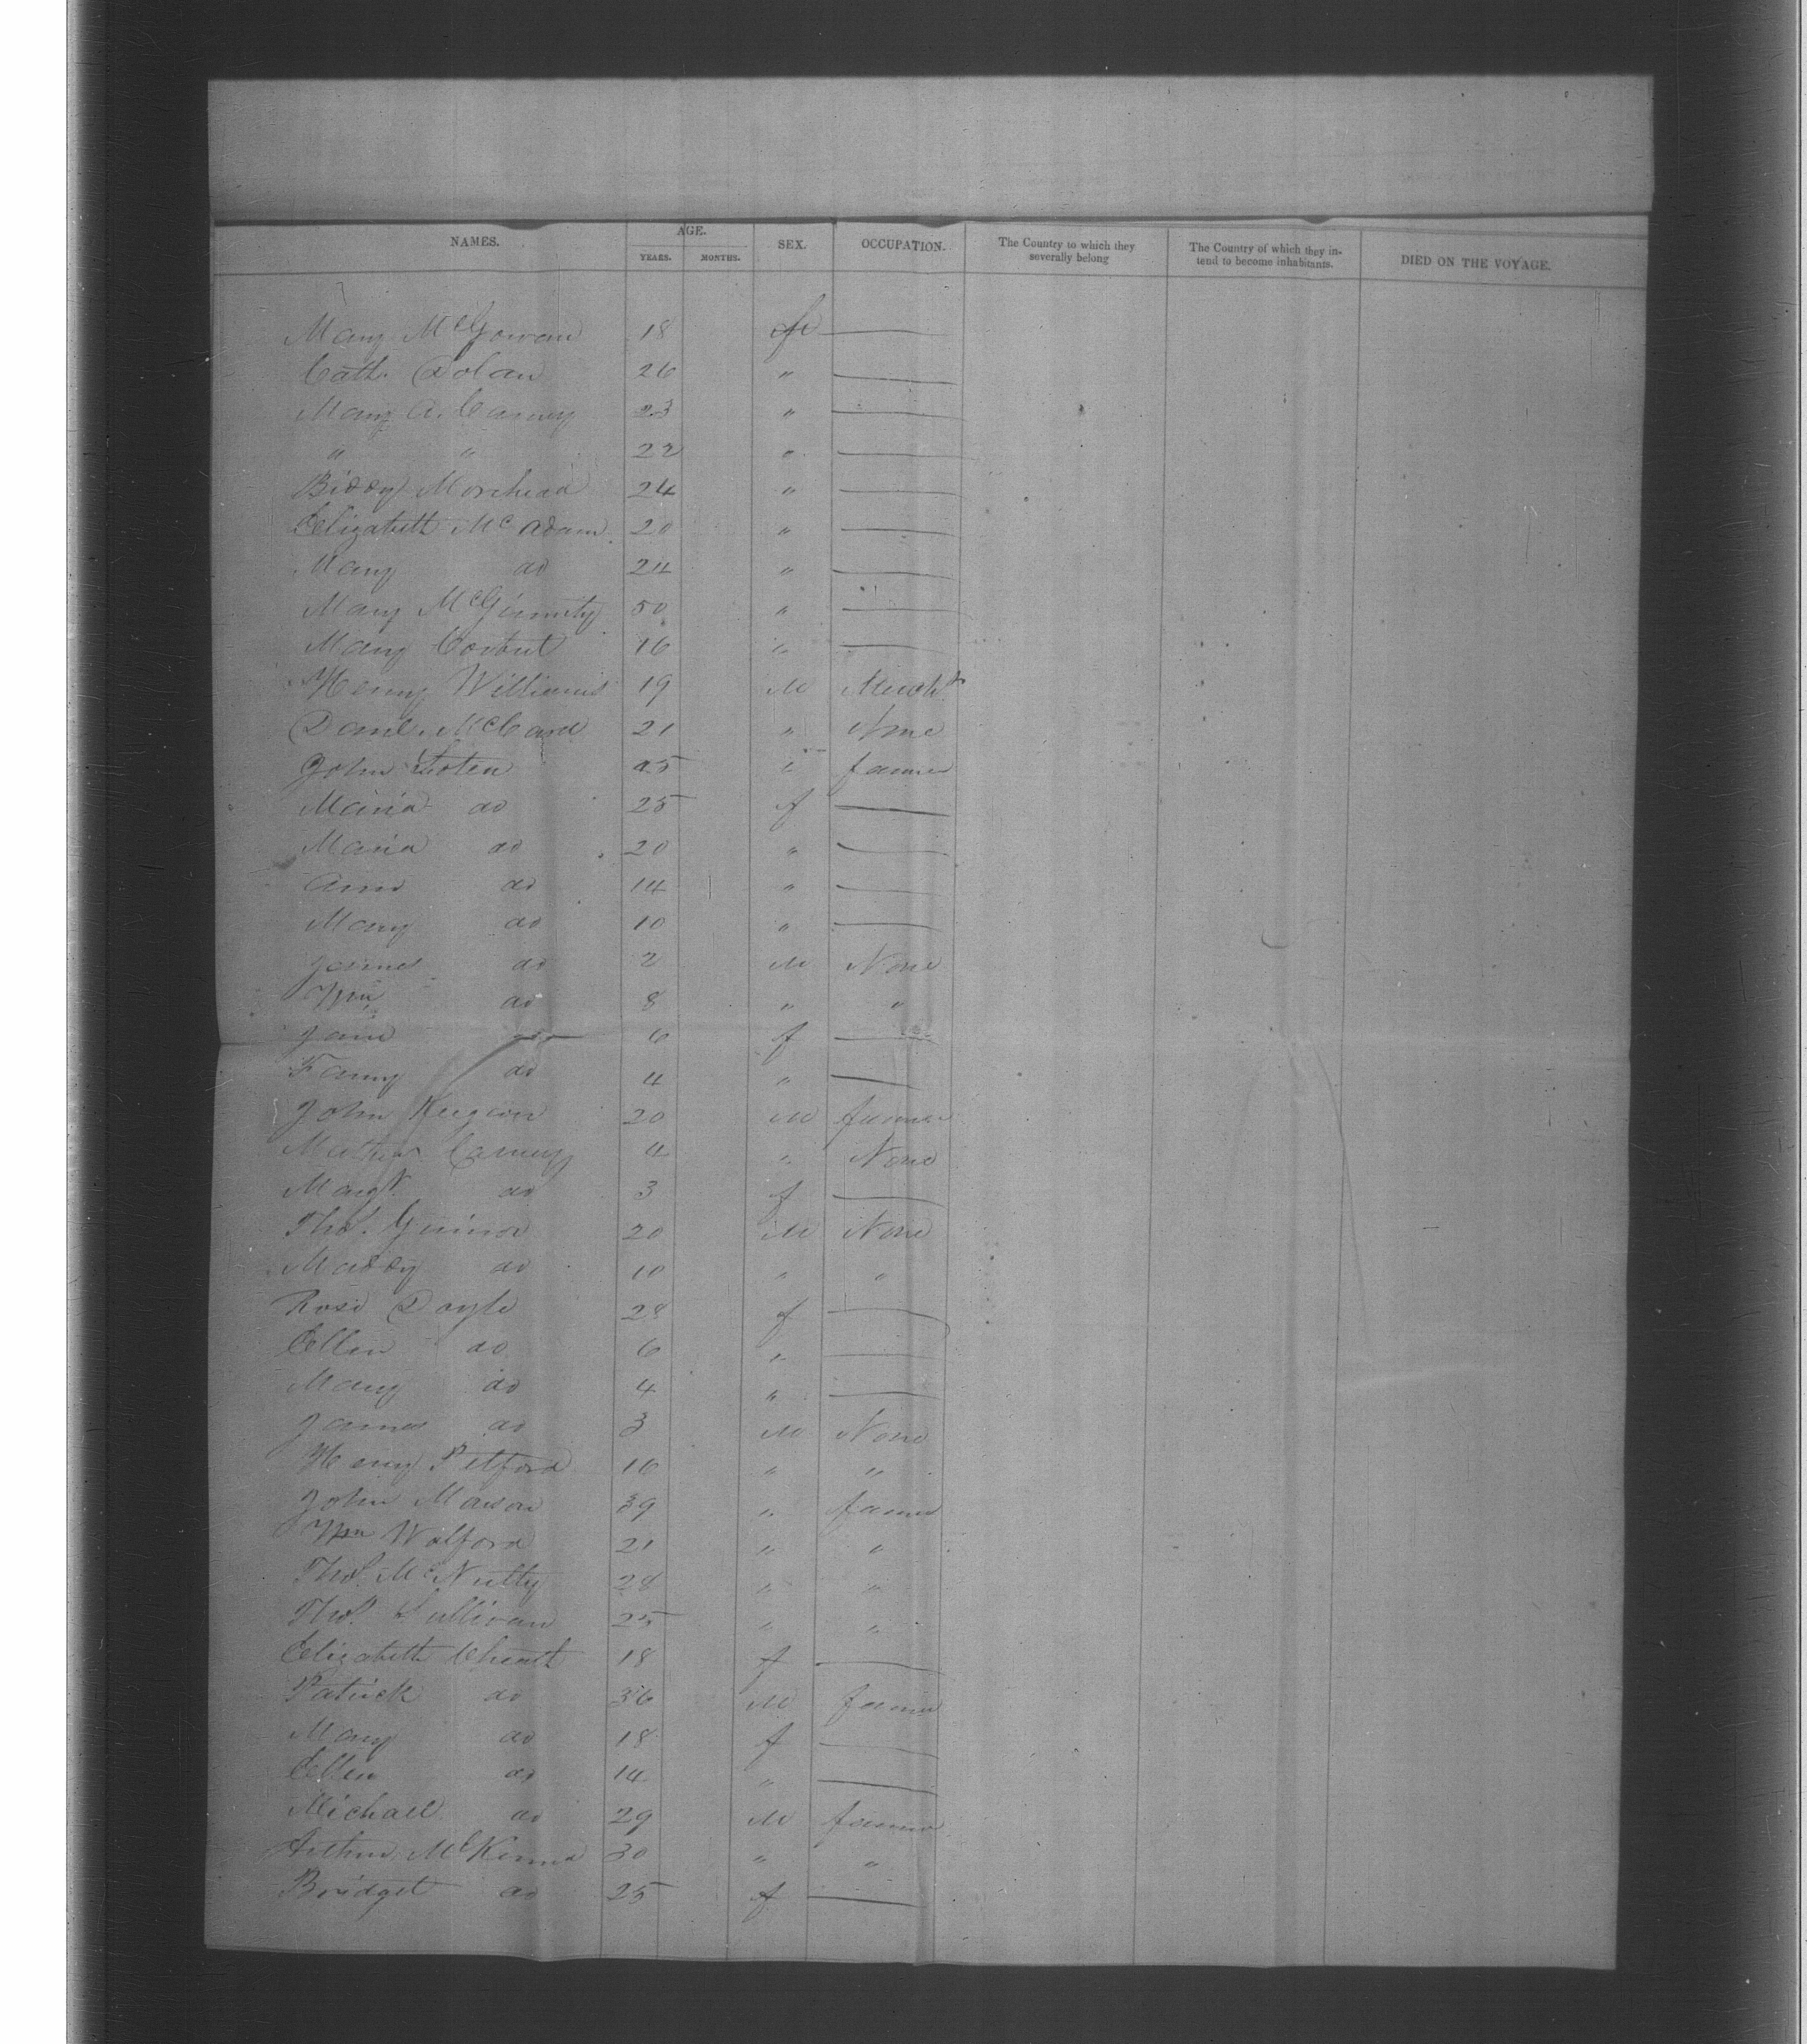 NAMES. AGE. SEX. OCCUPATION. The Country to which they severally belong The Country of which they intend to become inhabitants. DIED ON THE VOYAGE.
YEARS. MONTHS.
Mary McGowan 18 f —
Cath. Dolan 26 " —
Mary A. Carney 23 " —
" " 22 " —
Biddy Morehead 24 " —
Elizabeth McAdam 20 " —
Mary do 24 " —
Mary McGinnity 50 " —
Mary Corbut 16 " —
Henry Williams 19 M Mercht
Danl. McCard 21 " None
John 45 " farmer
Maria do 25 f —
Maria do 20 " —
Ann do 14 " —
Mary do 10 " —
James do 2 M None
Wm do 8 " "
Jane do 6 f —
Fanny do 4 " —
John Keegan 20 M farmer
Mathew Carney 4 " None
Margt do 3 f —
Thos. 20 M None
do 10 " "
Rose Doyle 28 f —
Ellen do 6 " —
Mary do 4 " —
James do 3 M None
Henry Petford 16 " "
John Mason 39 " farmer
Wm Walford 21 " "
Thos. McNulty 28 " "
Thos. Sullivan 25 " "
Elizabeth 18 f —
Patrick do 36 M farmer
Mary do 18 f —
Ellen do 14 " —
Michael do 29 M farmer
Arthur McKenna 30 " "
Bridget do 25 f —